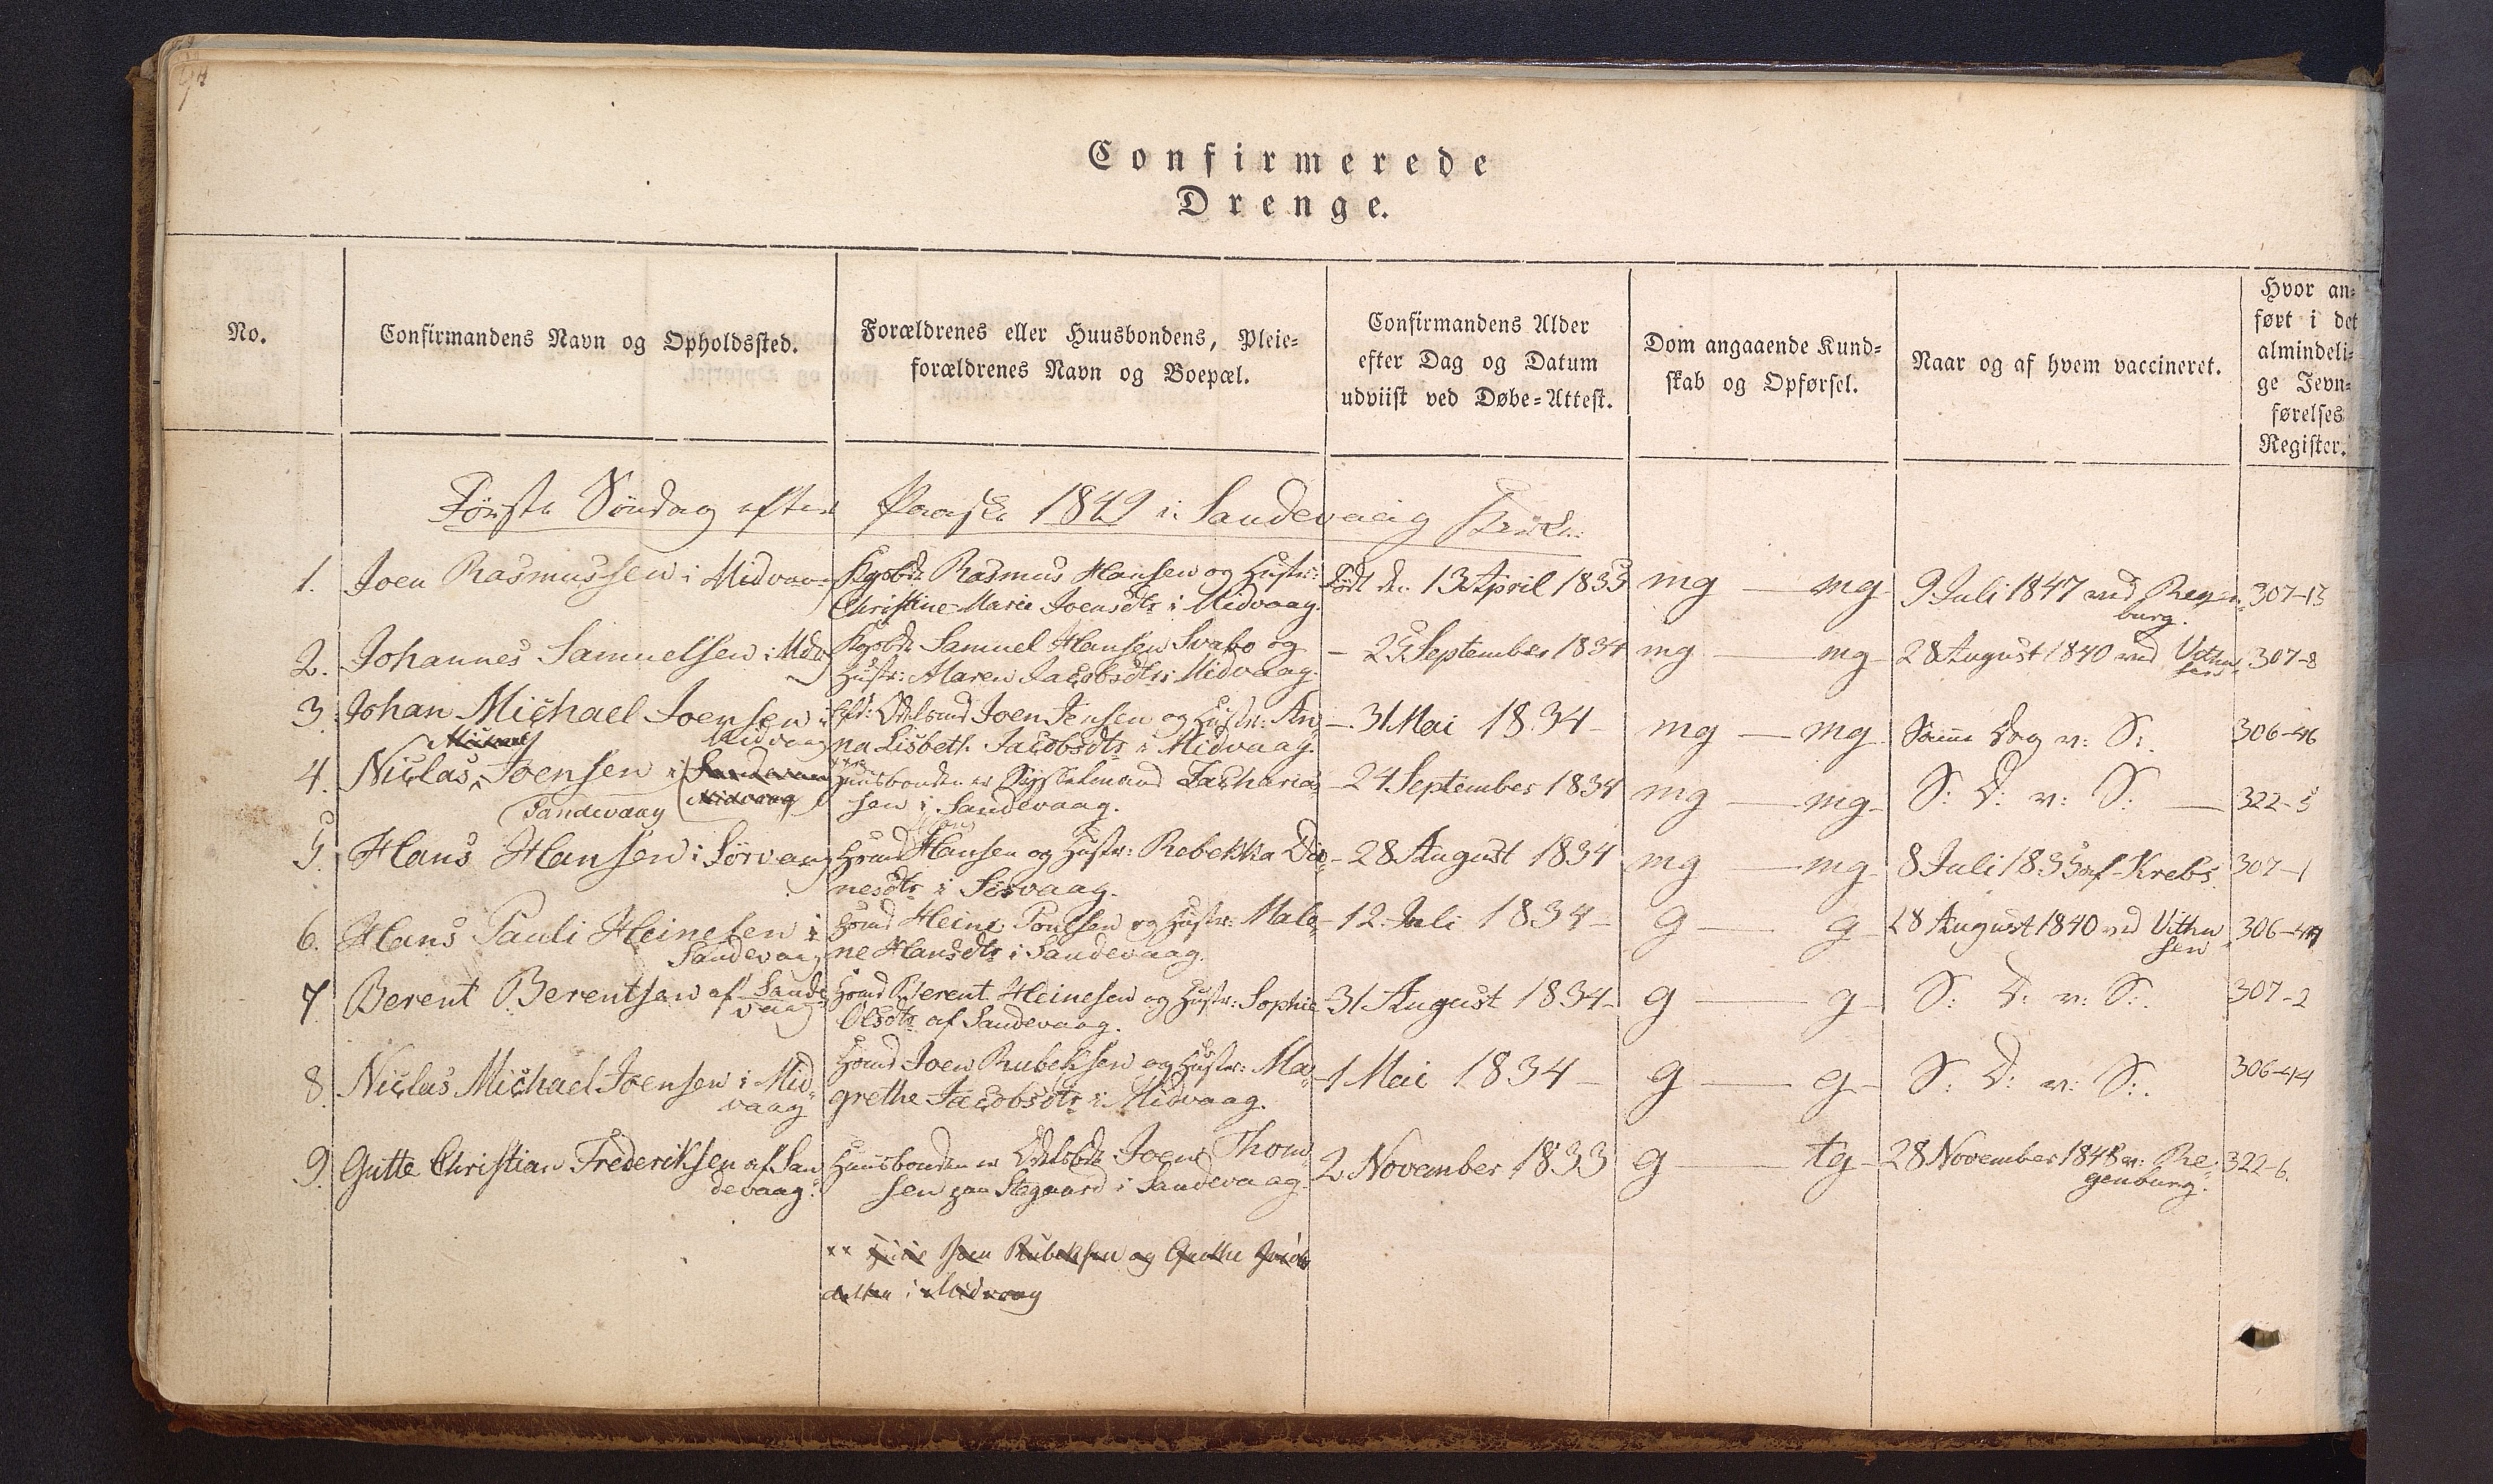 Confirmerede
Drenge.
No.
Confirmandens Navn og Opholdssted.
Forældrenes eller Huusbondens, Pleie-
forældrenes Navn og Boepæl.
Confirmandens Alder
efter Dag og Datum
udviist ved Døbe-Attest.
Dom angaaende Kund-
skab og Opførsel.
Naar og af hvem vaccineret.
Hvor an-
ført i det
almindeli-
ge Jevn-
førelses
Register.
Første Søndag efter Paaske 1849 i Sandevaag Kirke.
1. Joen Rasmussen i Midvaag
Kgsbde Rasmus Hansen og Hustr:
Christine Marie Joensdtr i Midvaag.
Født den 13 April 1835
mg — mg
9 Juli 1847 ved Regen-
burg.
307-13
2. Johannes Samuelsen i Midv
Kgsbde Samuel Hansen Svabo og
Hustr: Maren Jacobsdtr i Midvaag.
- 25 September 1834
mg — mg
28 August 1840 ved
307-8
3. Johan Michael Joensen i
Midvaag
Odelsmd Joen Jensen og Hustr: An-
na Lisbeth Jacobsdtr i Midvaag.
- 31 Mai 1834 -
mg — mg
Samme Dag v: S:.
306-46
4. Niclas Joensen i Sandevaag
Midvaag
Sandevaag
Huusbonden er Sysselmand Zacharia-
sen i Sandevaag.
- 24 September 1834
mg — mg
S: D: v: S: —
322-5
5. Hans Hansen i Sørvaag
Hmd Hansen og Hustr: Rebekka Da-
nesdtr i Sørvaag.
- 28 August 1834
mg — mg
8 Juli 1835 af Krebs.
307-1
6. Hans Pauli Heinesen i
Sandevaag
Hmd Heine Poulsen og Hustr: Male-
ne Hansdtr i Sandevaag.
- 12 Juli 1834 -
g — g
28 August 1840 ved
306-49
7 Berent Berentsen af Sande-
vaag
Hmd Berent Heinesen og Hustr: Sophie
Olsdtr af Sandevaag.
- 31 August 1834 -
g — g
S: D: v: S:.
307-2
8. Niclas Michael Joensen i Mid-
vaag
Hmd Joen Rubeksen og Hustr: Ma-
grethe Jacobsdtr i Midvaag.
- 1 Mai 1834 -
g — g
S: D: v: S:.
306-44
9. Gutte Christian Frederiksen af San-
devaag.
Huusbonden er Odelsbde Joen Thom-
sen paa Stegaard i Sandevaag.
2 November 1833
g — tg
28 November 1848 v: Re-
genburg.
322-6.
xx Joen Rubeksen og Grethe Jacobs
datter i Midvaag